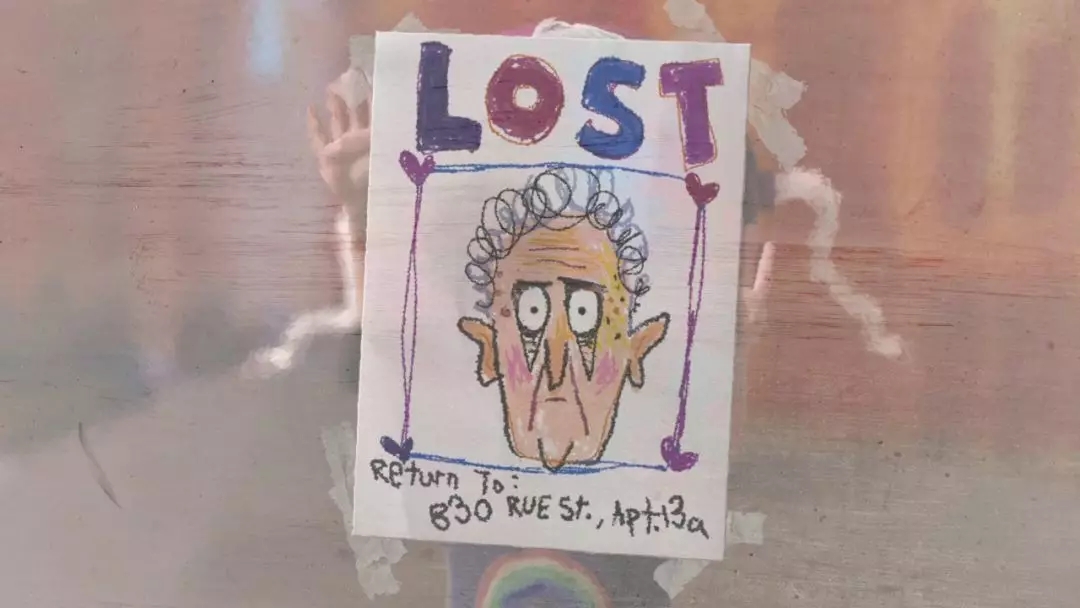 LOST
Return To:
830 RUE St., Apt.13a